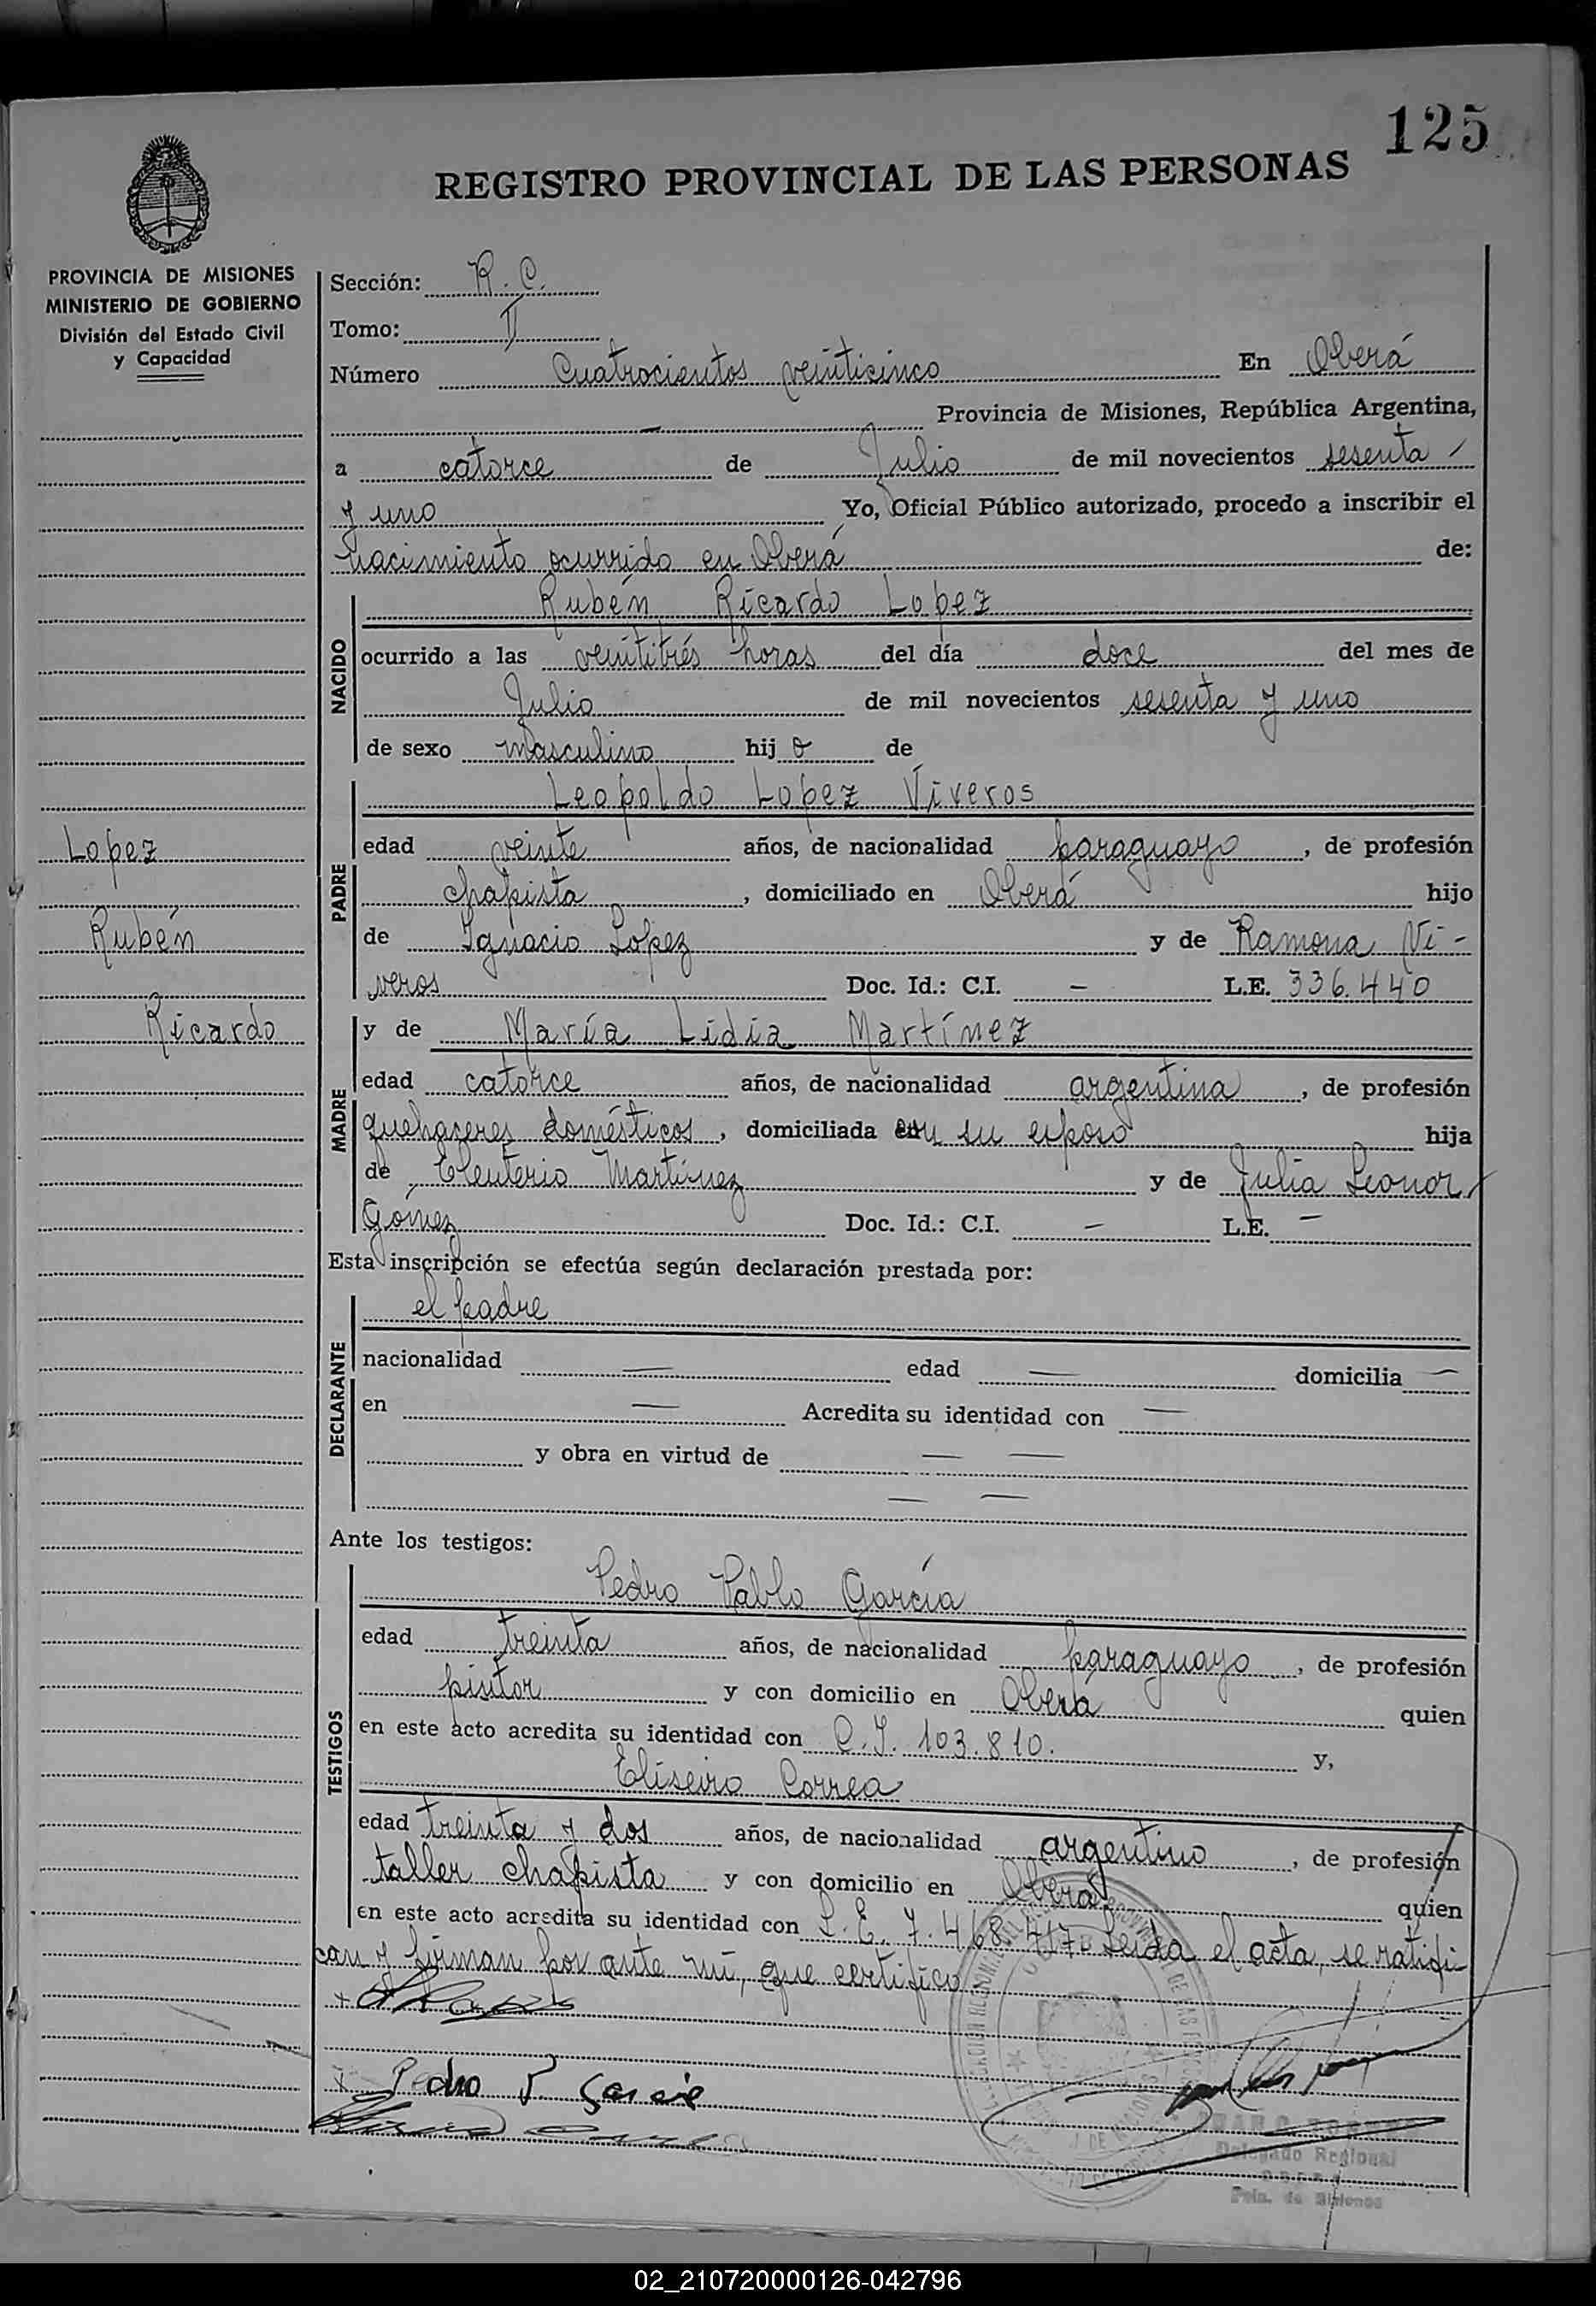 125
REGISTRO PROVINCIAL DE LAS PERSONAS
PROVINCIA DE MISIONES
MINISTERIO DE GOBIERNO
División del Estado Civil
y Capacidad
Lopez
Rubén
Ricardo
Sección: R. C.
Tomo: II
Número Cuatrocientos veinticinco En Oberá
— Provincia de Misiones, República Argentina,
a catorce de Julio de mil novecientos sesenta
y uno Yo, Oficial Público autorizado, procedo a inscribir el
nacimiento ocurrido en Oberá de:
NACIDO
Rubén Ricardo Lopez
ocurrido a las veintitrés horas del día doce del mes de
Julio de mil novecientos sesenta y uno
de sexo masculino hij o de
PADRE
Leopoldo Lopez Viveros
edad veinte años, de nacionalidad paraguayo, de profesión
chapista, domiciliado en Oberá hijo
de Ignacio Lopez y de Ramona Vi-
veros Doc. Id.: C.I. — L.E. 336.440
MADRE
y de María Lidia Martínez
edad catorce años, de nacionalidad argentina, de profesión
quehaceres domésticos, domiciliada con su esposo hija
de Eleuterio Martínez y de Julia Leonor
Gómez Doc. Id.: C.I. — L.E. —
Esta inscripción se efectúa según declaración prestada por:
DECLARANTE
el padre
nacionalidad — edad — domicilia —
en — Acredita su identidad con —
y obra en virtud de — —
— —
Ante los testigos:
TESTIGOS
Pedro Pablo García
edad treinta años, de nacionalidad paraguayo, de profesión
pintor y con domicilio en Oberá quien
en este acto acredita su identidad con C.I. 103.810. y,
Eliseiro Correa
edad treinta y dos años, de nacionalidad argentino, de profesión
taller chapista y con domicilio en Oberá quien
en este acto acredita su identidad con L.E. 7.468.417. Leida el acta, se ratifi
can y firman por ante mí, que certifico
Pedro P. Garcia
Delegado Regional
OBERA
Pcia. de Misiones
02_210720000126-042796